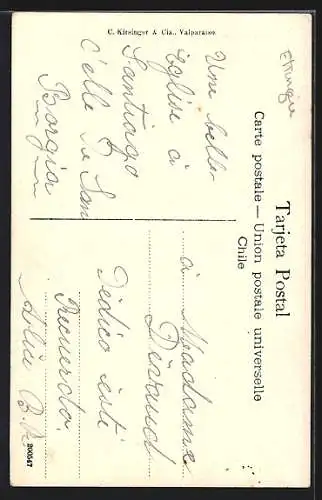 C. Kirsinger & Cia., Valparaiso
Tarjeta Postal
Carte postale — Union postale universelle
Chile
Une belle
Eglise à
Santiago
C'elle De San
Borgia
à Madame
Dédico este
Recuerdo
Alice B.
200547